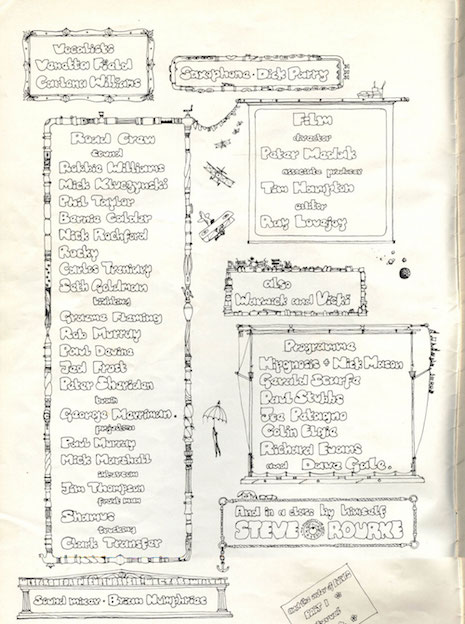 Vocalists
Vanetta Field
Carlena Williams
Saxophone · Dick Parry
Road Crew
sound
Robbie Williams
Mick Kluczynski
Phil Taylor
Bernie Caldar
Nick Rochford
Rocky
Carlos Trenidry
Seth Goldman
building
Graeme Fleming
Rob Murray
Paul Devine
Jed Frost
Peter Sheridan
George Merriman.
projection
Paul Murray
Mick Marshall
Jim Thompson
front man
Shamus
trucking
Clark Transfer
Sound mixer · Brian Numphries
Film
director
Peter Medak
associate producer
Tim Hampton
editor
Ray Lovejoy
also
Warwick and Vicki
Programme
Hipgnosis + Nick Mason
Gerald Scarfe
Paul Stubbs
Joe Patagno
Colin Elgie
Richard Evans
and Dave Gale.
And in a class by himself
STEVE O'ROURKE
and the order of
PART 1